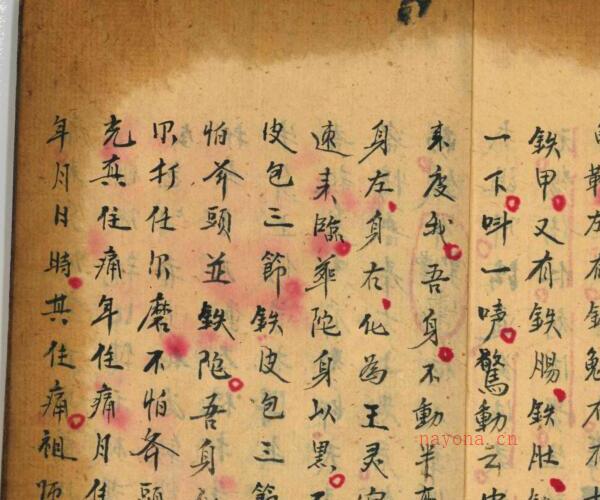 有鞋左有鉄
鉄甲又有鉄腸鉄肚
一下叫一声驚動云
来度我吾身不動半
身左身右化為王灵官
速来臨華陀身以黑
皮包三節鉄皮包三節
怕斧頭並鉄陀吾身
尔打任尔磨不怕斧頭
克真住痛年住痛月住
年月日時其住痛祖师
nayona.cn